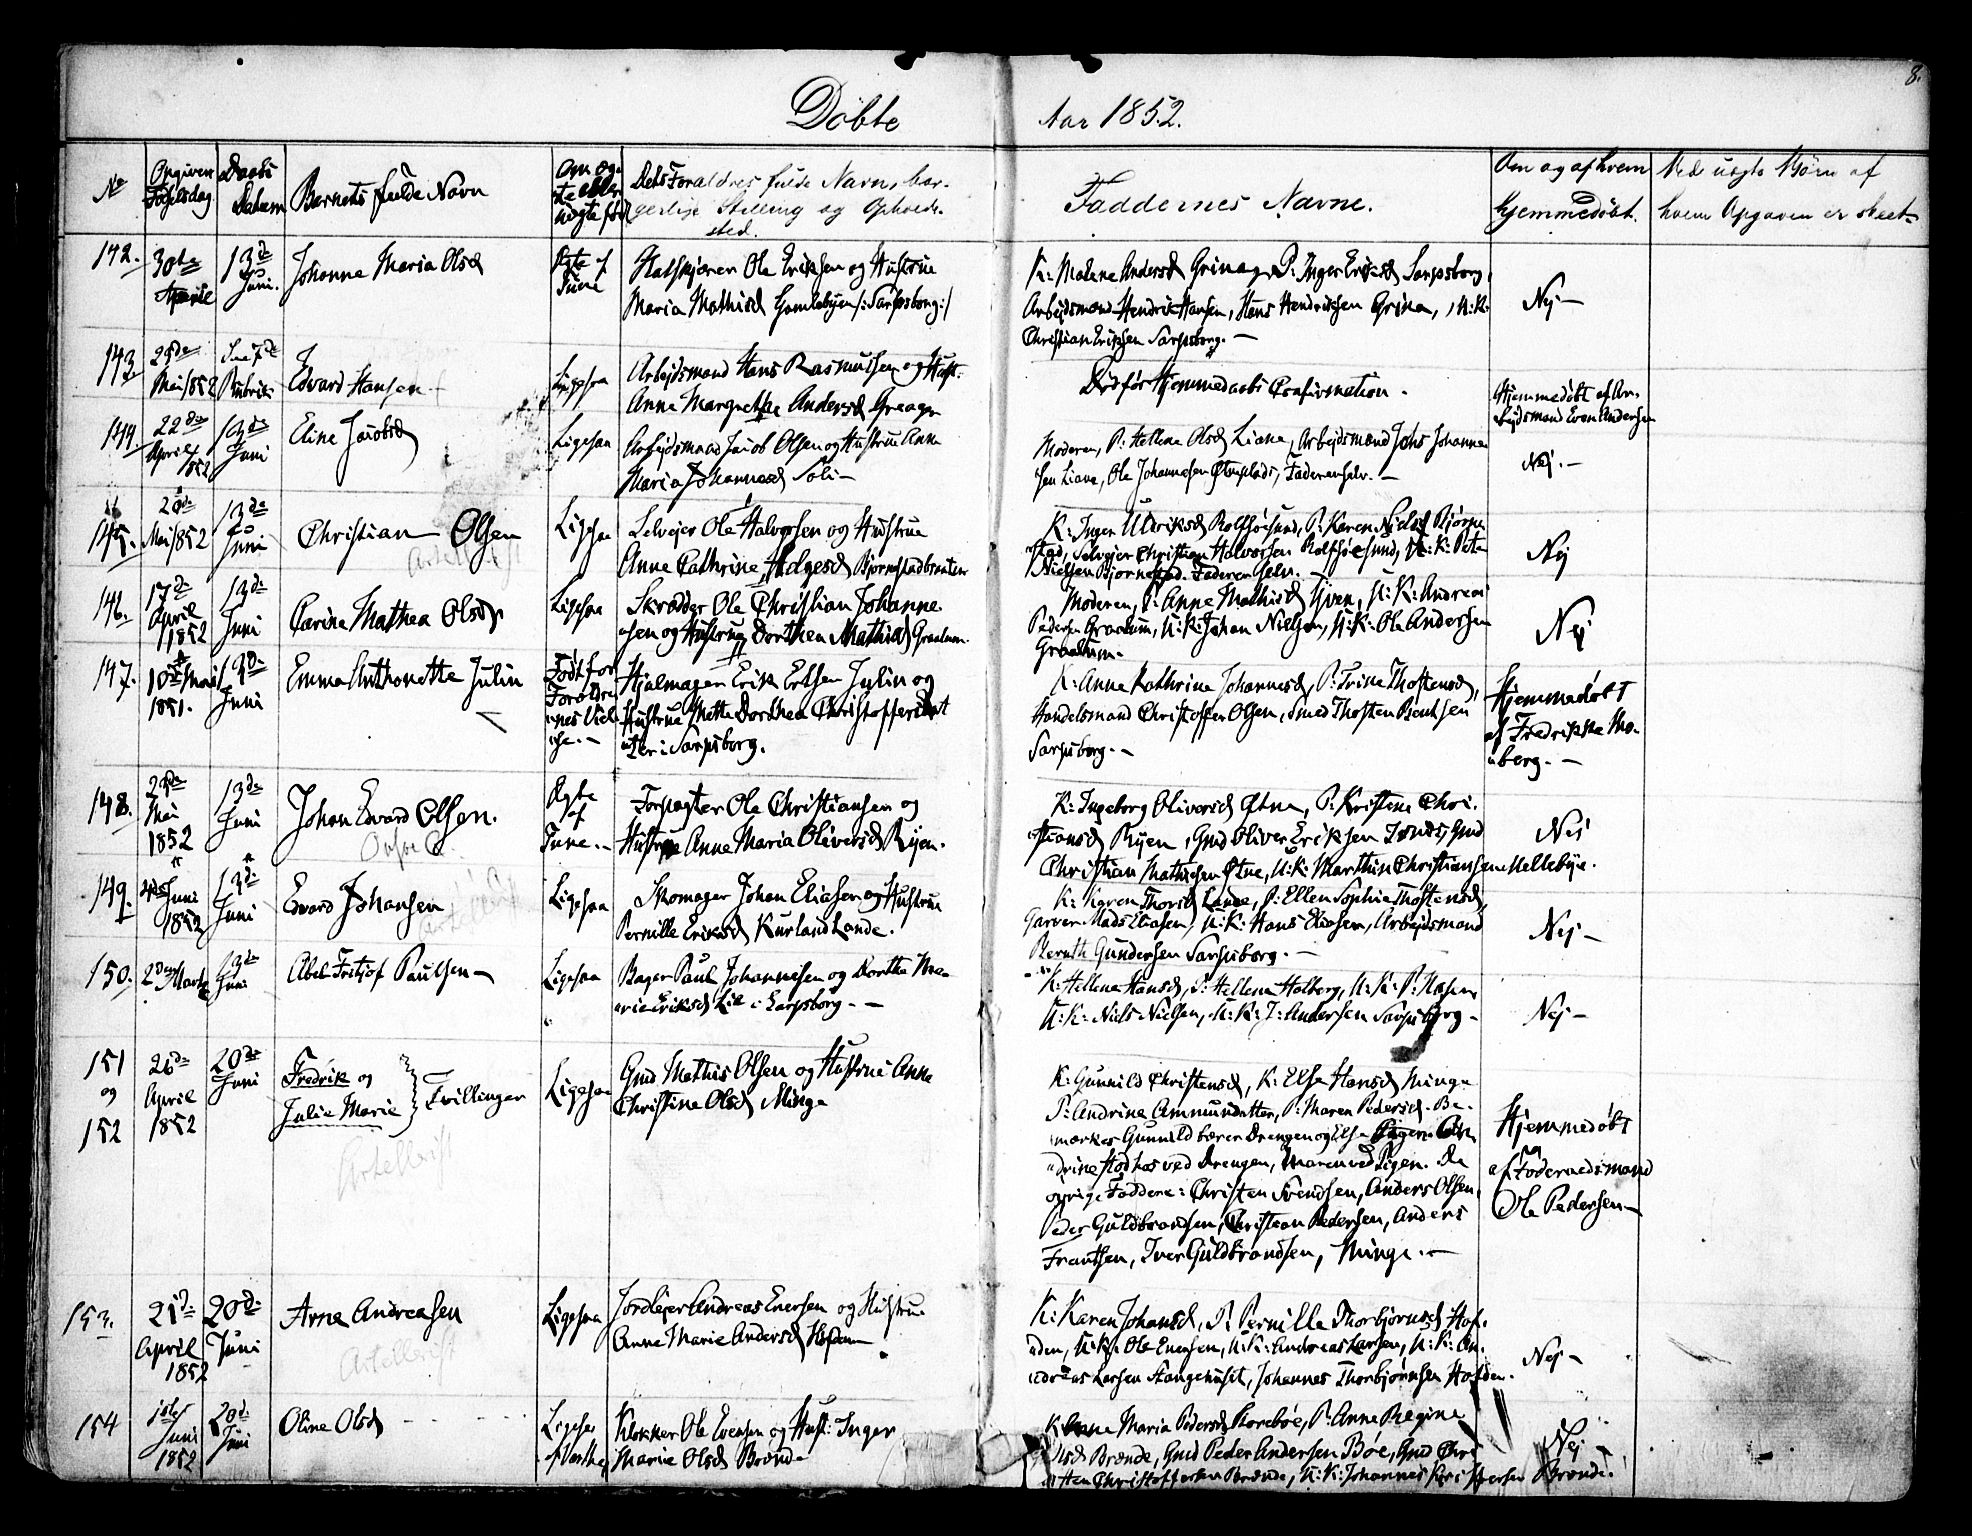 8.
Döbte
Aar 1852.
No
Opgiven Födselsdag
Daabs Datum
Barnets fulde Navn
Om ægte eller uægte född
Dets Forældres fulde Navn, borgerlige Stilling og Opholdssted.
Faddernes Navne.
Om og af hvem hjemmedöbt.
Ved uægte Börn af hvem Opgaven er skeet
142.
30te April
13de Juni.
Johanne Maria Olsd
Ægte af Tune
Ole Eriksen og Hustrue
Maria Mathisd Gamlebyen /:Sarpsborg:/
K: Malene Andersd P: Inger Eriksd Sarpsborg,
Arbejdsmand Hendrik Hansen, Hans Hendriksen U: K:
Christian Eriksen Sarpsborg. —
Nej —
143.
Mai 1852
Edvard Hansen
Ligesaa
Arbejdsmand Hans Rasmussen og Hust:
Anne Margrethe Andersd
Död för Hjemmedaabs Confirmation.
Hjemmedöbt af Arbejdsmand Even Andersen
144.
22de April 1852
13de Juni
Eline Jacobsd
Ligesaa
Arbejdsmand Jacob Olsen og Hustrue Anne
Maria Johannesd Soli —
Moderen, P: Hellene Olsd Liane, Arbejdsmand Johannessen Liane, Ole Johannesen Faderen selv. —
Nej. —
145.
Mai 1852
13de Juni
Christian Olsen
Ligesaa
Selvejer Ole Halvorsen og Hustrue
Anne Cathrine Helgesd
K: Inger Ulriksd Rolfsöesund, P: Karen Nielsd Björnestad, Selvejer Christian Halvorsen Rolfsöesund, U: K: Peter
Nielsen Björnestad. Faderen selv.
Nej
146.
17de April 1852
13de Juni
Carine Mathea Olsd
Ligesaa
Skrædder Ole Christian Johannesen og Hustrue Dorthea Mathisd Graalum.
Moderen, P: Anne Mathisd U: K: Andreas
Pedersen Graalum, U: K: Johan Nielsen, U: K: Ole Andersen
Graalum. —
Nej
147.
10de Mai 1851.
13de Juni
Emma Anthonette Julin
Födt for Forældrenes Vielse. —
Hjulmager Erik Julin og
Hustrue Mette Dorthea Christoffersdat
i Sarpsborg.
K: Anne Kathrine Johannesd, P: Trine Thostensd,
Handelsmand Christoffer Olsen, Smed Thosten Bentsen
Sarpsborg. —
Hjemmedöbt af Fredrikke Moberg. —
148.
Mai 1852
13de Juni
Johan Edvard Olsen.
Ægte af Tune. —
Forpagter Ole Christiansen og
Hustrue Anne Maria Oliversd Ryen.
K: Ingeborg Oliversd P: Kristine Christiansd Ryen, Gmd Oliver Eriksen Gmd
Christian Mathisen U: K: Marthin Christiansen Mellebye.
Nej
149.
Juni 1852
13de Juni
Edvard Johansen
Ligesaa
Skomager Johan Eliasen og Hustrue
Pernille Eriksd Kurland Lande.
K: Karen Thorsd Lande, P: Ellen Sophie Thostensd,
Garver Mads Eliasen, U: K: Hans Eliasen, Arbejdsmand
Bernth Gundersen Sarpsborg. —
Nej —
150.
2den Marts
13de Juni
Abel Fritjof Paulsen —
Ligesaa
Bager Paul Johannesen og Dorthe Marie Eriksd Lie i Sarpsborg. —
K: Hellene Hansd, P: Hellene Holberg, U: K: P: Hasen,
U: K: Niels Nielsen, U: K: J: Andersen Sarpsborg —
Nej —
151 og 152
26de April 1852
20de Juni
Fredrik og
Julie Marie
Tvillinger
Ligesaa
Gmd Mathis Olsen og Hustrue Anne
Christine Olsd Minge
K: Gunnild Christensd, K: Else Hansd Minge
P: Andrine Ammundatter, P: Maren Pedersd. Bemærkes Gunnild bærer Drengen og Else Pigen. Andrine stod hos ved Drengen, Maren ved Pigen. De
övrige Faddere: Christen Svendsen, Anders Olsen,
Peder Guldbrandsen, Christian Pedersen, Anders
Frantsen, Iver Guldbrandsen, Minge. —
Hjemmedöbt af Föderaadsmand Ole Pedersen —
153.
21de April 1852
20de Juni
Arne Andreasen
Ligesaa
Jordlejer Andreas Evensen og Hustrue
Anne Marie Andersd
K: Karen Johansd, P: Pernille Thorbjörnsd
U: K: Ole Evensen, U: K: Andreas Larsen, U: K: Andreas Larsen Stangehuset, Johannes Thorbjörnsen
Nej —
154
1ste Juni 1852
20de Juni
Oline Olsd
Ligesaa
Klokker Ole Evensen og Hust: Inger
Marie Olsd Brønde
K: Anne Maria Pedersd P: Anne Regine
Olsd Brønde, Gmd Peder Andersen Böe, Gmd
Christoffersen Brønde, U: K: Johannes Brønde.
Nej